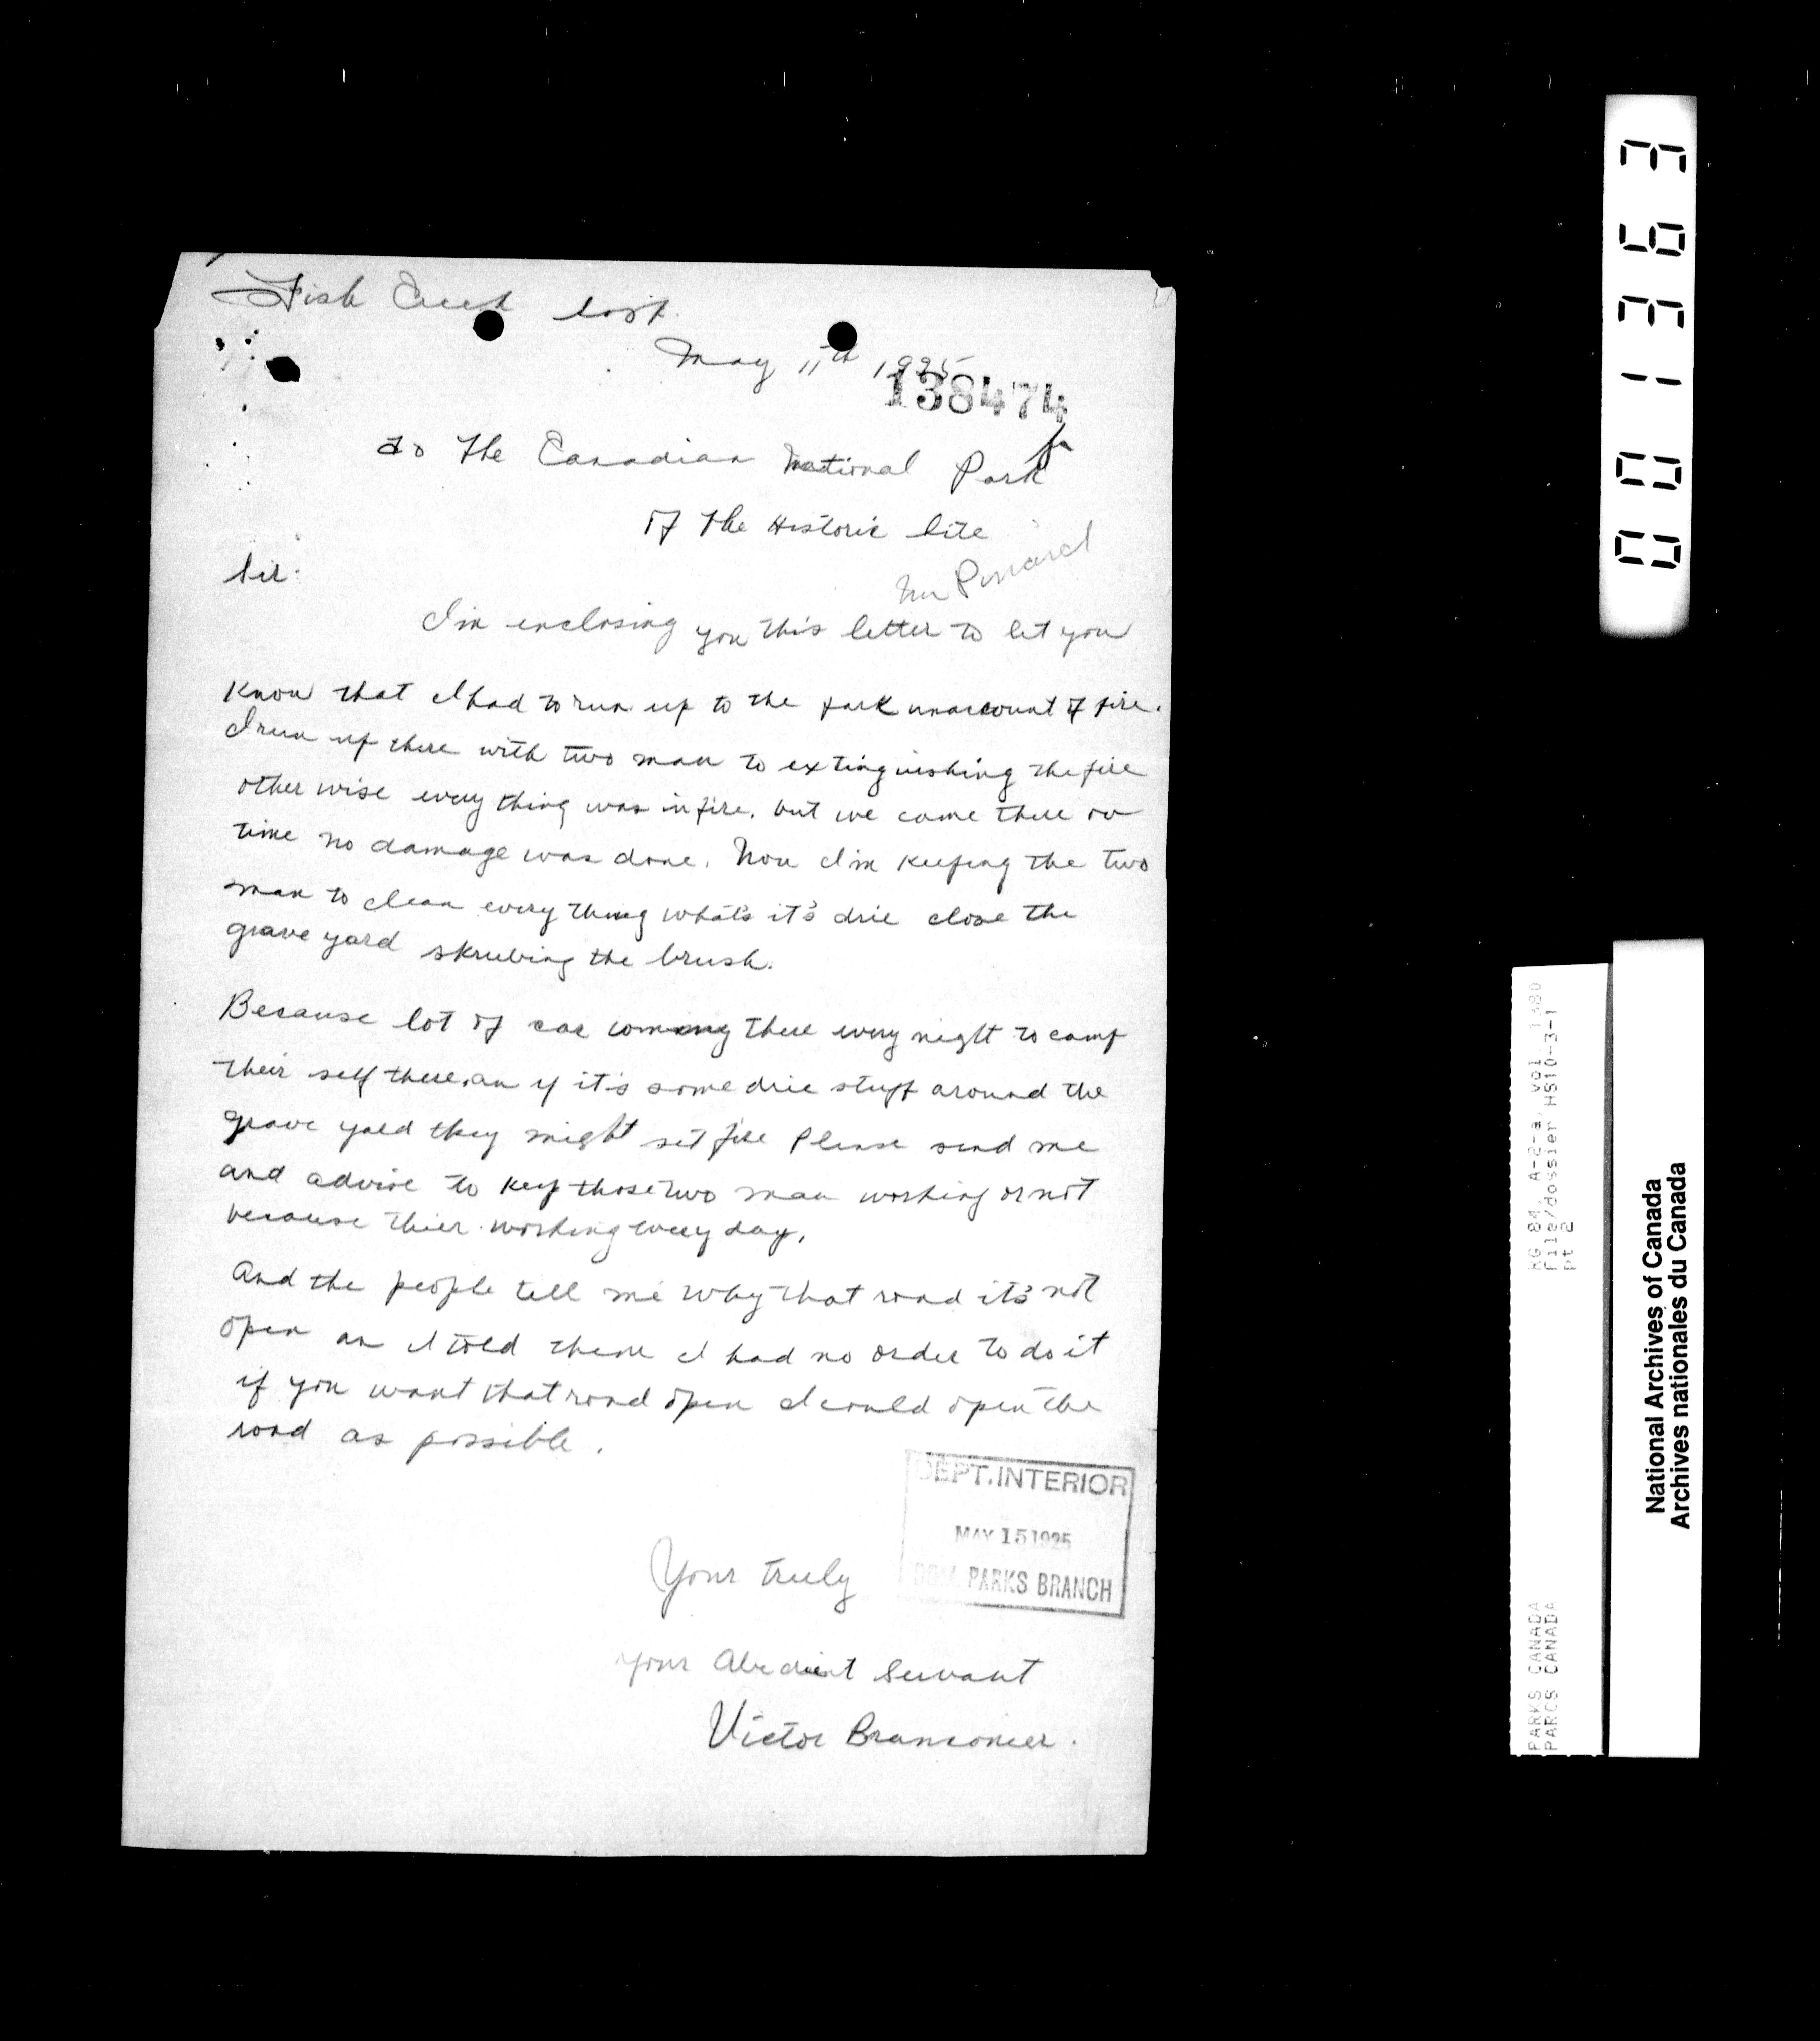 Fish Creek Sask.
May 11th 1925
138474
To The Canadian National Park
of The Historic Site
Sir.
Mr Pinard
I'm enclosing you this letter to let you
Know that I had to run up to the park unaccount of fire.
I run up there with two man to extinguishing the fire
other wise every thing was in fire. but we came there on
time no damage was done. Now I'm keeping the two
man to clean every thing what's it's drie close the
grave yard skrubing the brush.
Because lot of car coming there every night to camp
their self there. an if it's some drie stuff around the
grave yard they might set fire Please send me
and advise to keep those two man working or not
because thier working every day.
And the people tell me why that road it's not
open an I told them I had no order to do it
if you want that road open I could open the
road as possible.
DEPT. INTERIOR
MAY 15 1925
DOM. PARKS BRANCH
Your truly
your Abedient Servant
Victor
001363
RG 84, A-2-a, vol 1380
File/dossier HS10-3-1
pt 2
PARKS CANADA
PARCS CANADA
National Archives of Canada
Archives nationales du Canada